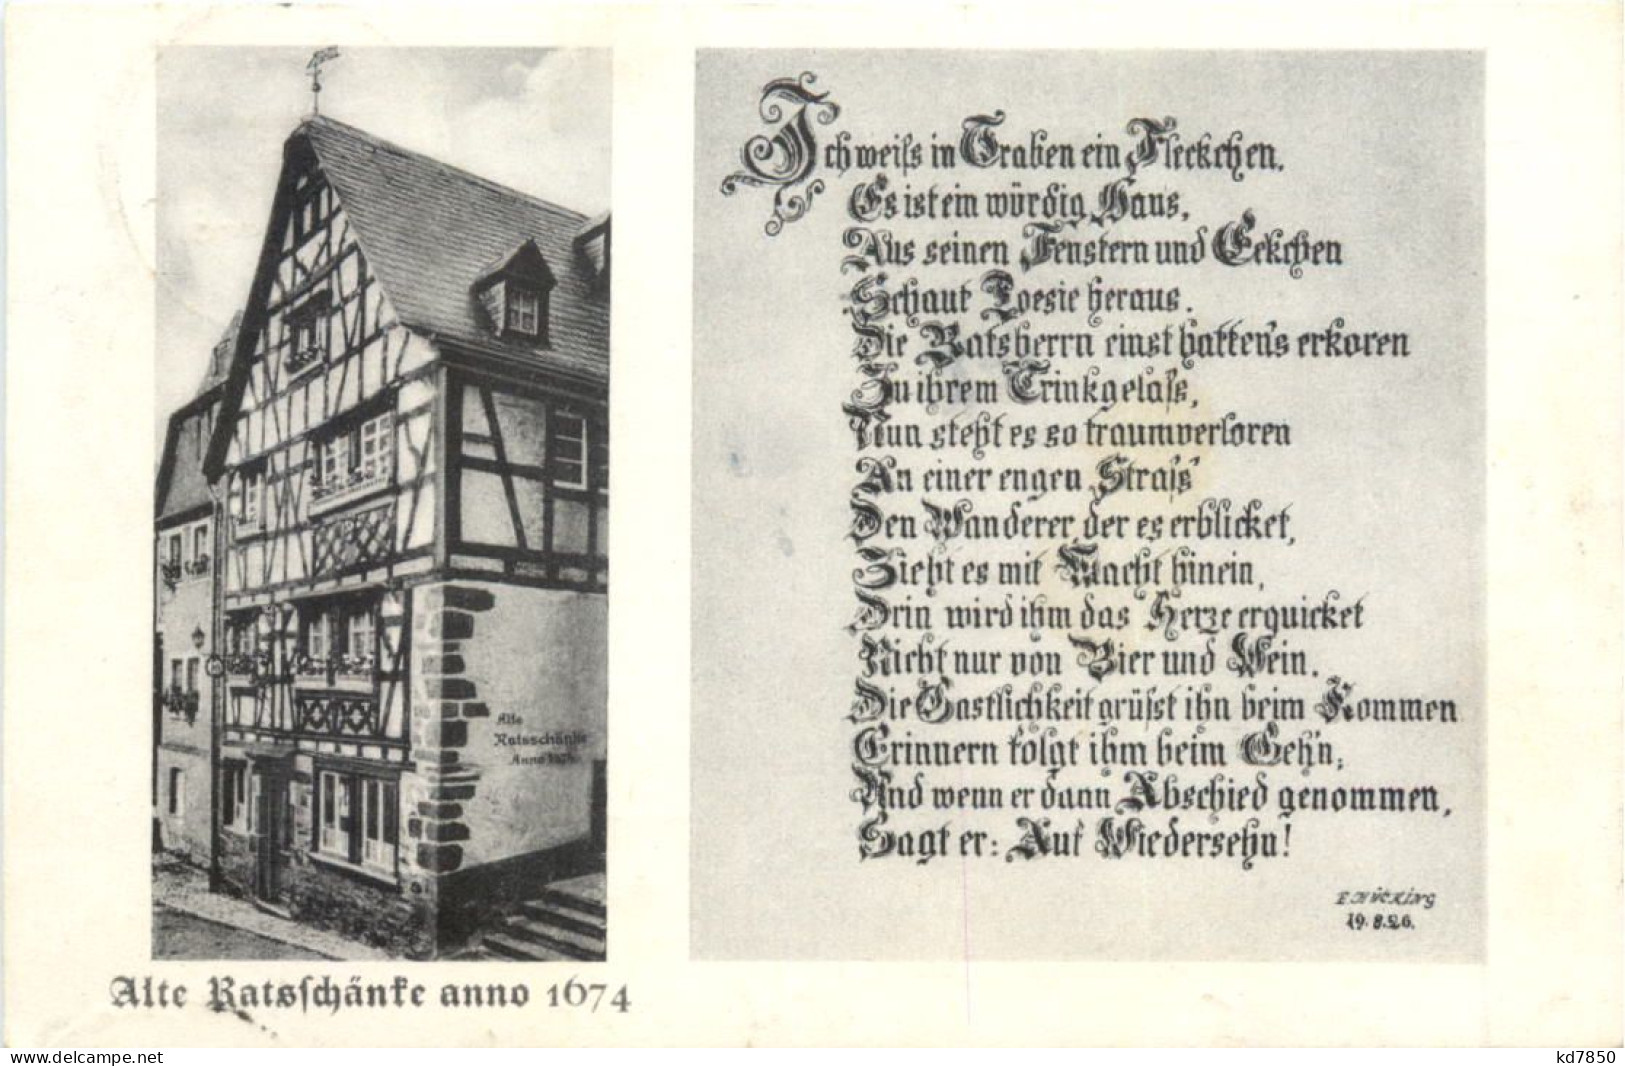 Ich weiss in Traben ein Fleckchen.
Es ist ein würdig Haus,
Aus seinen Fenstern und Eckchen
Schaut Poesie heraus.
Die Ratsherrn einst hatten's erkoren
Zu ihrem Trinkgelass,
Nun steht es so traumverloren
An einer engen Strass'
Den Wanderer, der es erblicket,
Zieht es mit Macht hinein,
Drin wird ihm das Herze erquicket
Nicht nur von Bier und Wein.
Die Gastlichkeit grüsst ihn beim Kommen
Erinnern folgt ihm beim Gehn,
Und wenn er dann Abschied genommen,
Sagt er: Auf Wiedersehn!
E. Hücking
19.8.26.
Alte
Ratsschänke
Anno 1674
Alte Ratsschänke anno 1674
www.delcampe.net
kd7850